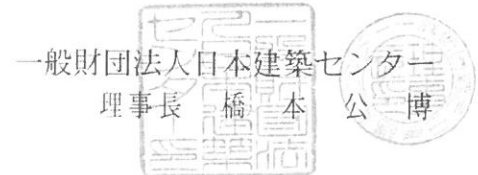 一般財団法人日本建築センター
理事長 橋本公博